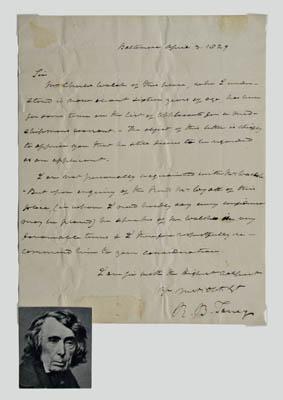 Baltimore April 3. 1829
Sir
Mr Charles Walsh of this place, who I under-
stand is now about sixteen years of age has been
for some time on the list of applicants for a mid-
shipmans warrant - The object of this letter is chiefly
to apprise you that he still desires to be regarded
as an applicant.
I am not personally acquainted with Mr Walsh
But upon enquiry of the Revd Mr Wyatt of this
place, (in whom I need hardly say every confidence
may be placed) he speaks of Mr Walsh in very
favourable terms & I therefore respectfully re-
commend him to your consideration
I am Sir with the highest respect
Yr. Most Obt St
R. B. Taney